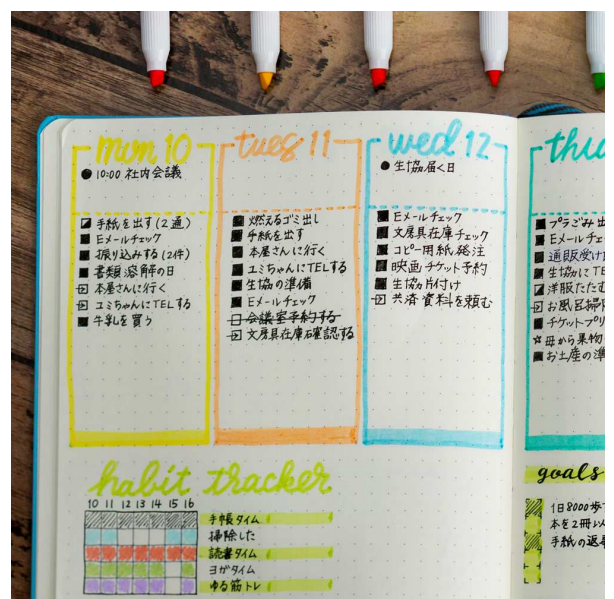 mon 10
● 10:00 社内会議
手紙を出す(2通)
Eメールチェック
振り込みする(2件)
書類溶解の日
本屋さんに行く
ユミちゃんにTELする
牛乳を買う
tues 11
燃えるゴミ出し
手紙を出す
本屋さんに行く
ユミちゃんにTELする
生協の準備
Eメールチェック
会議室予約する
文房具在庫確認する
wed 12
● 生協届く日
Eメールチェック
文房具在庫チェック
コピー用紙発注
映画チケット予約
生協片付け
共済資料を頼む
thu
プラごみ出
Eメールチェ
通販受け
生協にTE
洋服たたむ
お風呂掃
チケットプリ
☆ 母から果物
お土産の準
habit tracker
10 11 12 13 14 15 16
手帳タイム
掃除した
読書タイム
ヨガタイム
ゆる筋トレ
goals
1日8000歩
本を2冊以
手紙の返